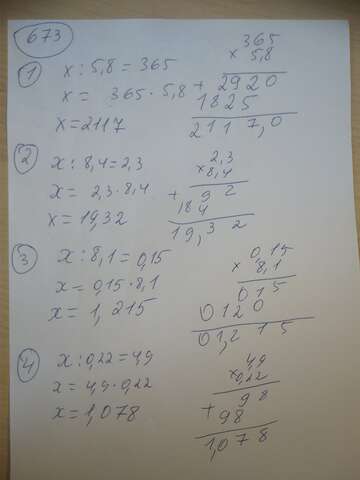 673
1 x : 5,8 = 365
x = 365 · 5,8
x = 2117
365
× 5,8
+ 2920
1825
2117,0
2 x : 8,4 = 2,3
x = 2,3 · 8,4
x = 19,32
2,3
× 8,4
+ 92
184
19,32
3 x : 8,1 = 0,15
x = 0,15 · 8,1
x = 1,215
0,15
× 8,1
015
0120
01,215
4 x : 0,22 = 4,9
x = 4,9 · 0,22
x = 1,078
4,9
× 0,22
+ 98
98
1,078